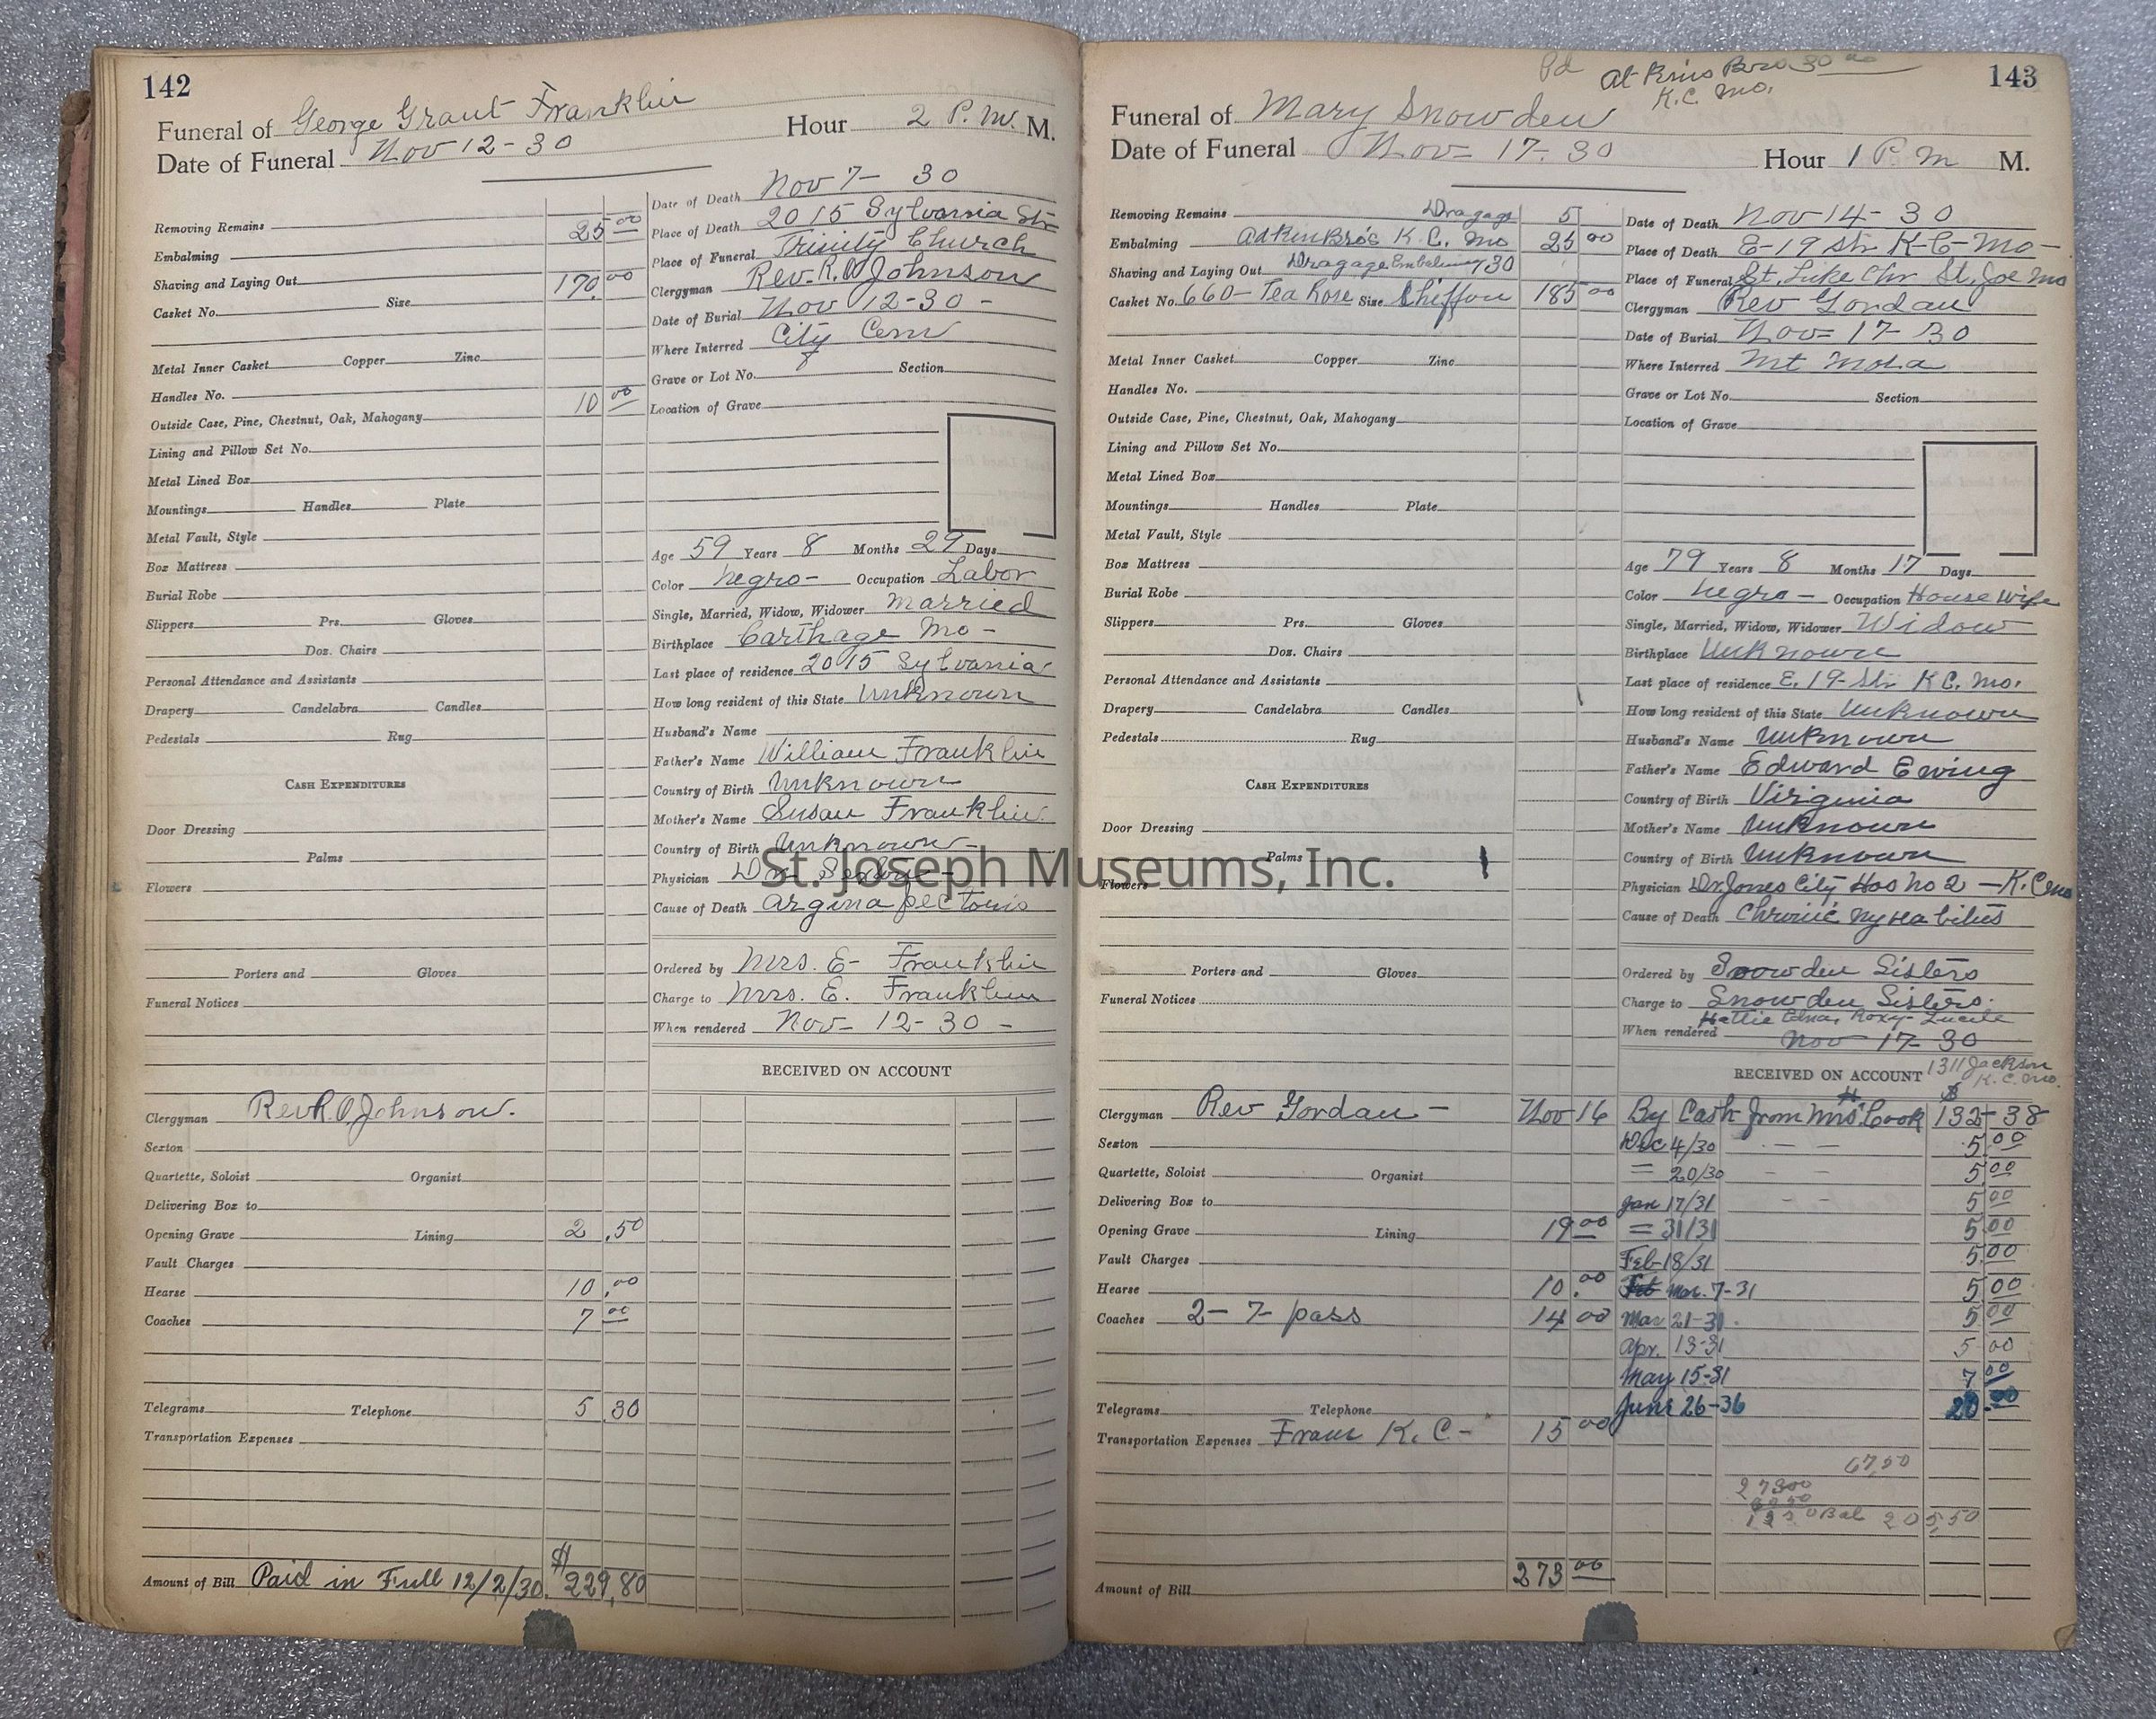 142
Funeral of George Grant Franklin Hour 2 P.M. M.
Date of Funeral Nov 12-30
Removing Remains 25 00
Embalming
Shaving and Laying Out 170 00
Casket No. Size
Metal Inner Casket Copper Zinc
Handles No. 10 00
Outside Case, Pine, Chestnut, Oak, Mahogany
Lining and Pillow Set No.
Metal Lined Box
Mountings Handles Plate
Metal Vault, Style
Box Mattress
Burial Robe
Slippers Prs. Gloves
Doz. Chairs
Personal Attendance and Assistants
Drapery Candelabra Candles
Pedestals Rug
CASH EXPENDITURES
Door Dressing
Palms
Flowers
Porters and Gloves
Funeral Notices
Clergyman Rev R. O. Johnson.
Sexton
Quartette, Soloist Organist
Delivering Box to
Opening Grave Lining 2.50
Vault Charges
Hearse 10.00
Coaches 7 00
Telegrams Telephone 5 30
Transportation Expenses
Amount of Bill Paid in Full 12/2/30. $229,80
Date of Death Nov 7- 30
Place of Death 2015 Sylvania Str
Place of Funeral Trinity Church
Clergyman Rev. R. O Johnson
Date of Burial Nov 12-30 -
Where Interred City Cem
Grave or Lot No. Section
Location of Grave
Age 59 Years 8 Months 29 Days
Color negro- Occupation Labor
Single, Married, Widow, Widower married
Birthplace Carthage Mo -
Last place of residence 2015 Sylvania
How long resident of this State Unknown
Husband's Name
Father's Name William Franklin
Country of Birth Unknown
Mother's Name Susan Franklin
Country of Birth Unknown-
Physician Dr.
Cause of Death argina pectoris
Ordered by Mrs. E- Franklin
Charge to Mrs. E. Franklin
When rendered Nov- 12-30 -
RECEIVED ON ACCOUNT
143
Pd Atkins Bros 30 00
K.C. Mo.
Funeral of Mary Snowden
Date of Funeral Nov- 17-30 Hour 1 P.m M.
Removing Remains Dragage 5
Embalming Adkin Bro's K.C. Mo 25 00
Shaving and Laying Out Dragage Embalming 30
Casket No. 660- Tea Rose Size Chiffon 185 00
Metal Inner Casket Copper Zinc
Handles No.
Outside Case, Pine, Chestnut, Oak, Mahogany
Lining and Pillow Set No.
Metal Lined Box
Mountings Handles Plate
Metal Vault, Style
Box Mattress
Burial Robe
Slippers Prs. Gloves
Doz. Chairs
Personal Attendance and Assistants
Drapery Candelabra Candles
Pedestals Rug
CASH EXPENDITURES
Door Dressing
Palms
Flowers
Porters and Gloves
Funeral Notices
Clergyman Rev Gordan -
Sexton
Quartette, Soloist Organist
Delivering Box to
Opening Grave Lining 19 00
Vault Charges
Hearse 10.00
Coaches 2- 7- pass 14 00
Telegrams Telephone
Transportation Expenses From K.C- 15 00
Amount of Bill 273 00
Date of Death Nov 14- 30
Place of Death E-19 Str K-C-Mo-
Place of Funeral St. Luke Chr St. Joe Mo
Clergyman Rev Gordan
Date of Burial Nov- 17-30
Where Interred Mt Mora
Grave or Lot No. Section
Location of Grave
Age 79 Years 8 Months 17 Days
Color negro- Occupation House Wife
Single, Married, Widow, Widower Widow
Birthplace Unknown
Last place of residence E. 19-Str K C. Mo.
How long resident of this State Unknown
Husband's Name Unknown
Father's Name Edward Ewing
Country of Birth Virginia
Mother's Name Unknown
Country of Birth Unknown
Physician Dr. Jones City Hos No 2 - K.C mo
Cause of Death Chronic
Ordered by Snowden Sisters
Charge to Snowden Sisters.
Hattie Edna, Roxy- Lucile
When rendered Nov 17-30
RECEIVED ON ACCOUNT 1311 Jackson
K.C. Mo.
Nov 16 By Cash from Mrs Cook $132-38
Dec 4/30 - - 5.00
= 20/30 - - 5.00
Jan 17/31 - - 5 00
= 31/31 5.00
Feb 18/31 5.00
Mar. 7-31 5 00
Mar 21-31. 5 00
Apr. 13-31 5-00
May 15-31 7 00
June 26-36 20.00
67,50
27300
6750
Bal 205,50
St. Joseph Museums, Inc.